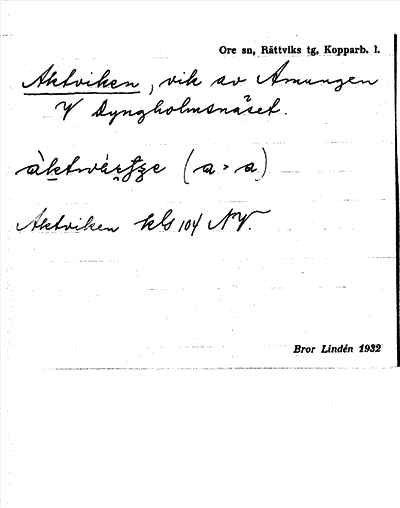 Ore sn, Rättviks tg, Kopparb. l.
Aktviken, vik av Amungen
V Dyngholmsnäset.
(a > a)
Aktviken kbl 104 NV.
Bror Lindén 1932